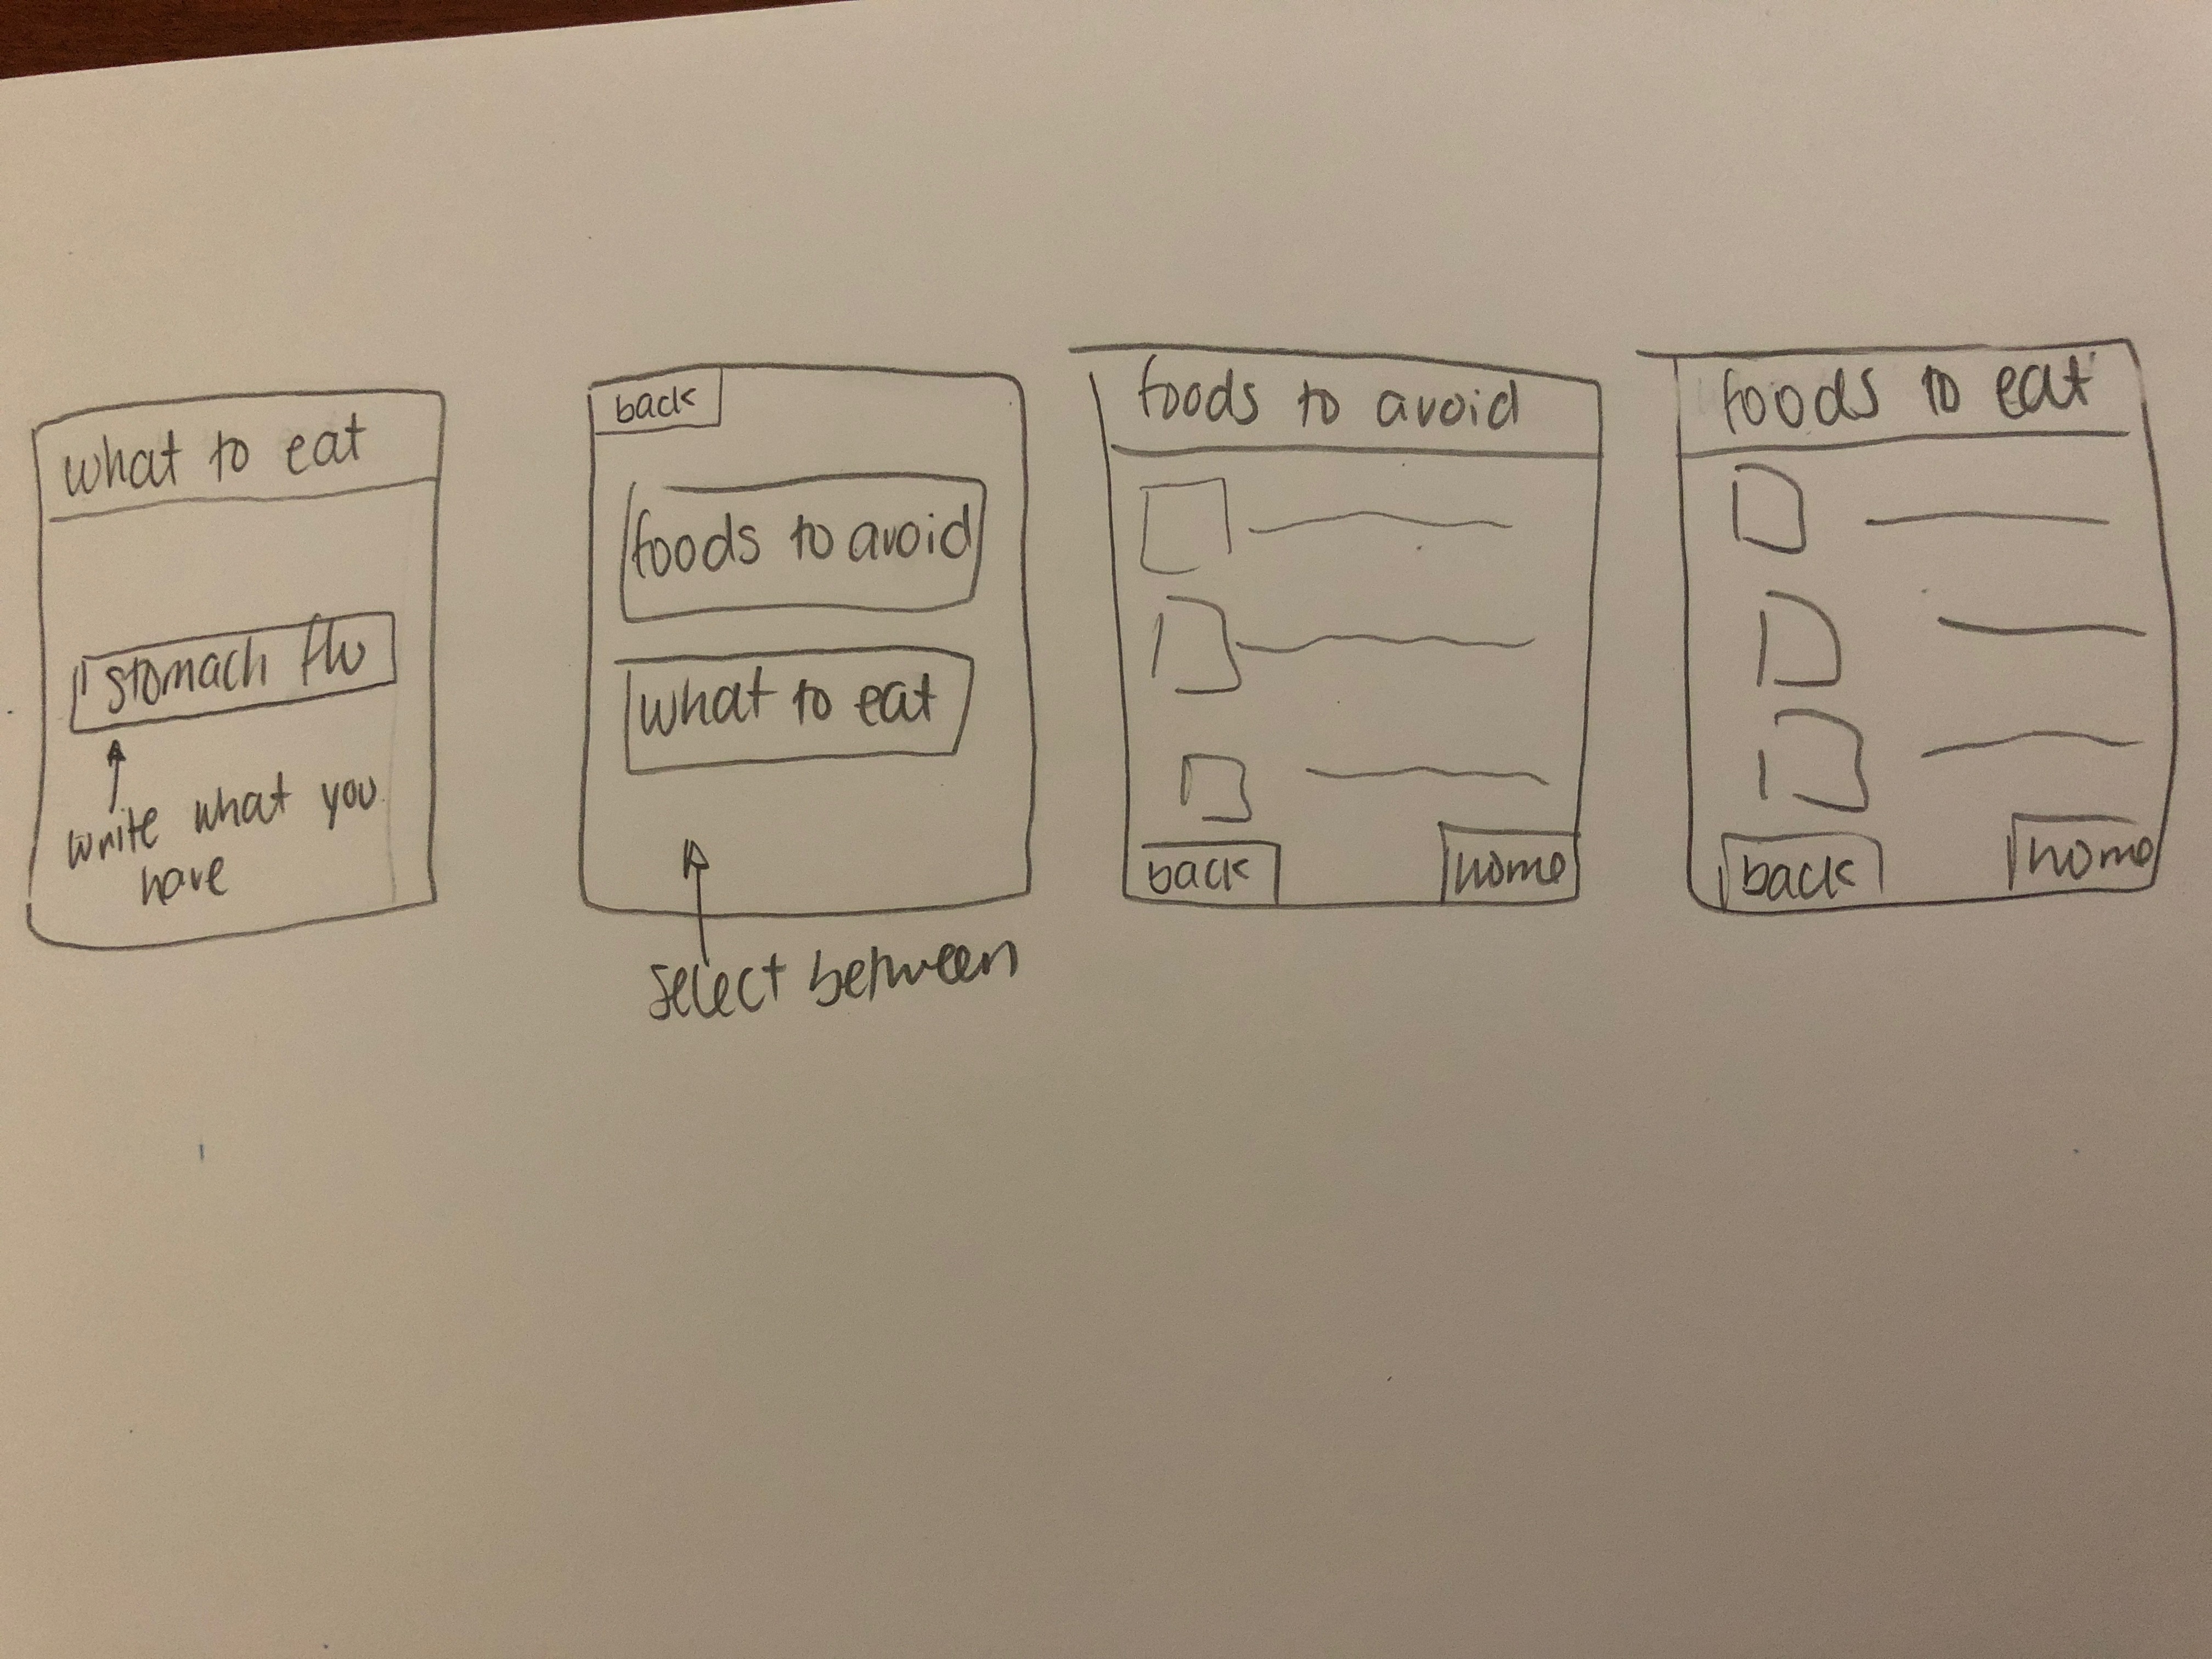 what to eat
stomach flu
write what you
have
back
foods to avoid
what to eat
select between
foods to avoid
back
home
foods to eat
back
home